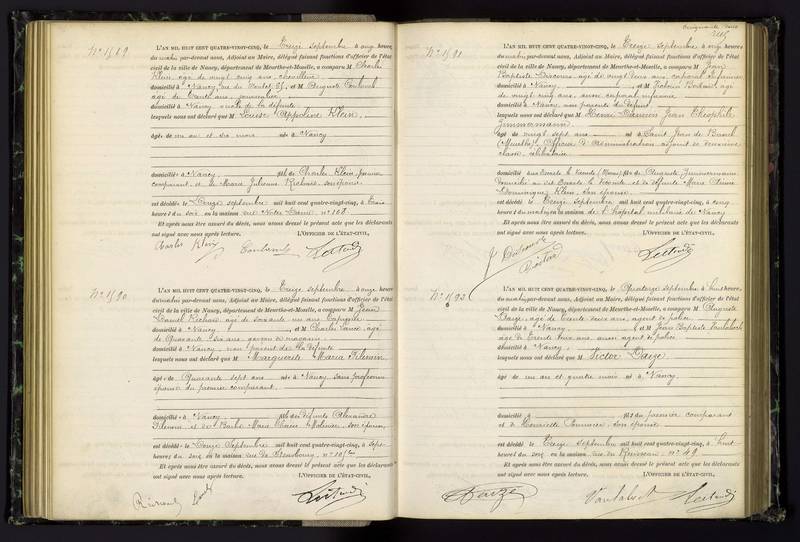 N° 1589
L'AN MIL HUIT CENT QUATRE-VINGT-CINQ, le Treize septembre à onze heures
du matin par-devant nous, Adjoint au Maire, délégué faisant fonctions d'officier de l'état
civil de la ville de Nancy, département de Meurthe-et-Moselle, a comparu M Charles
Klein, âgé de vingt cinq ans,
domicilié à Nancy, rue et M Auguste
âgé de ans, journalier,
domicilié à Nancy de la défunte
lesquels nous ont déclaré que M Louise Appoline Klein,
âgée de un an et six mois née à Nancy
domiciliée à Nancy fille de Charles Klein, premier
comparant et de Marie Julienne son épouse
est décédée le Douze septembre mil huit cent quatre-vingt-cinq, à
heures du soir en la maison rue Notre Dame n° 168
Et après nous être assuré du décès, nous avons dressé le présent acte que les déclarants
ont signé avec nous après lecture. L'OFFICIER DE L'ÉTAT-CIVIL,
Charles Klein
N° 1590
L'AN MIL HUIT CENT QUATRE-VINGT-CINQ, le Treize septembre à onze heures
du matin par-devant nous, Adjoint au Maire, délégué faisant fonctions d'officier de l'état
civil de la ville de Nancy, département de Meurthe-et-Moselle, a comparu M Jean
âgé de soixante un ans
domicilié à Nancy, et M Charles âgé
de Quarante six ans, garçon de magasin,
domicilié à Nancy, non parent de la défunte
lesquels nous ont déclaré que M Marguerite Maria
âgée de Quarante sept ans née à Nancy sans profession
épouse du premier comparant.
domiciliée à Nancy fille des défunts Alexandre
et de Barbe Marie son épouse,
est décédée le Douze Septembre mil huit cent quatre-vingt-cinq, à sept
heures du soir en la maison rue de Strasbourg, n°
Et après nous être assuré du décès, nous avons dressé le présent acte que les déclarants
ont signé avec nous après lecture. L'OFFICIER DE L'ÉTAT-CIVIL,
N° 1591
L'AN MIL HUIT CENT QUATRE-VINGT-CINQ, le Treize septembre à onze heures
du matin par-devant nous, Adjoint au Maire, délégué faisant fonctions d'officier de l'état
civil de la ville de Nancy, département de Meurthe-et-Moselle, a comparu M Jean
Baptiste âgé de vingt deux ans, caporal infirmier
domicilié à Nancy, et M âgé
de vingt cinq ans, aussi caporal infirmier
domicilié à Nancy, non parents du défunt
lesquels nous ont déclaré que M Henri Damien Jean Théophile
Zimmermann
âgé de vingt sept ans né à Saint Jean de
(Meurthe), Officier d'Administration adjoint de
classe, célibataire
domicilié fils de Zimmermann
domicilié et de défunte Marie
Dominique Klein, son épouse
est décédé le Treize septembre mil huit cent quatre-vingt-cinq, à cinq
heures du matin en la maison de l'hôpital militaire de Nancy
Et après nous être assuré du décès, nous avons dressé le présent acte que les déclarants
ont signé avec nous après lecture. L'OFFICIER DE L'ÉTAT-CIVIL,
N° 1592
L'AN MIL HUIT CENT QUATRE-VINGT-CINQ, le Quatorze septembre à huit heures
du matin par-devant nous, Adjoint au Maire, délégué faisant fonctions d'officier de l'état
civil de la ville de Nancy, département de Meurthe-et-Moselle, a comparu M Auguste
Daize, âgé de trente deux ans, agent de police
domicilié à Nancy et M Jean Baptiste
âgé de Trente deux ans, aussi agent de police
domicilié à Nancy,
lesquels nous ont déclaré que M Victor Daize
âgé de un an et quatre mois né à Nancy.
domicilié à fils du premier comparant
et de Henriette son épouse
est décédé le Treize septembre mil huit cent quatre-vingt-cinq, à huit
heures du soir en la maison rue du Ruisseau n° 49
Et après nous être assuré du décès, nous avons dressé le présent acte que les déclarants
ont signé avec nous après lecture. L'OFFICIER DE L'ÉTAT-CIVIL,
Daize